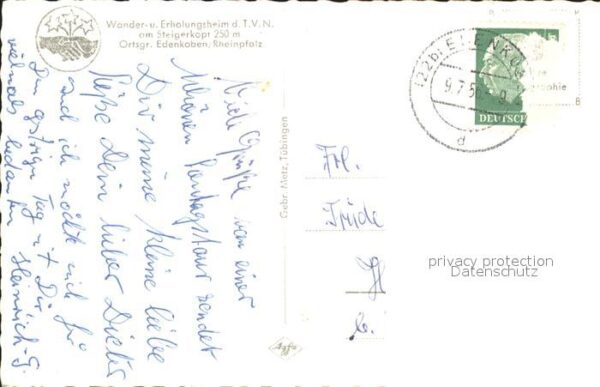 Wander- u. Erholungsheim d. T.V.N.
am Steigerkopf 250 m
Ortsgr. Edenkoben, Rheinpfalz
Viele Grüße von einer
schönen Sonntagstour sendet
Dir meine kleine liebe
süße Dein lieber Dieter
und ich möchte mich für
Den gestrigen Tag mit Dir
vielmals
Heinrich-G.
Gebr. Metz, Tübingen
Agfa
(22b) EDENKOB
9.7.5
d
DEUTSCH
B
Frl.
Trude
privacy protection
Datenschutz